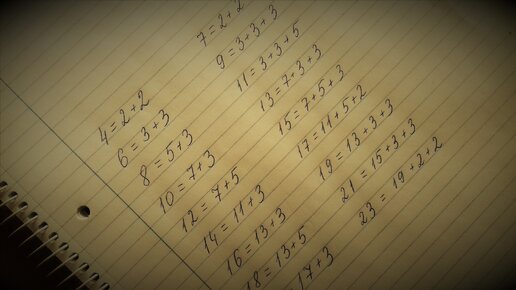 4 = 2 + 2
6 = 3 + 3
8 = 5 + 3
10 = 7 + 3
12 = 7 + 5
14 = 11 + 3
16 = 13 + 3
18 = 13 + 5
17 + 3
7 = 2 + 2
9 = 3 + 3 + 3
11 = 3 + 3 + 5
13 = 7 + 3 + 3
15 = 7 + 5 + 3
17 = 11 + 5 + 2
19 = 13 + 3 + 3
21 = 15 + 3 + 3
23 = 19 + 2 + 2